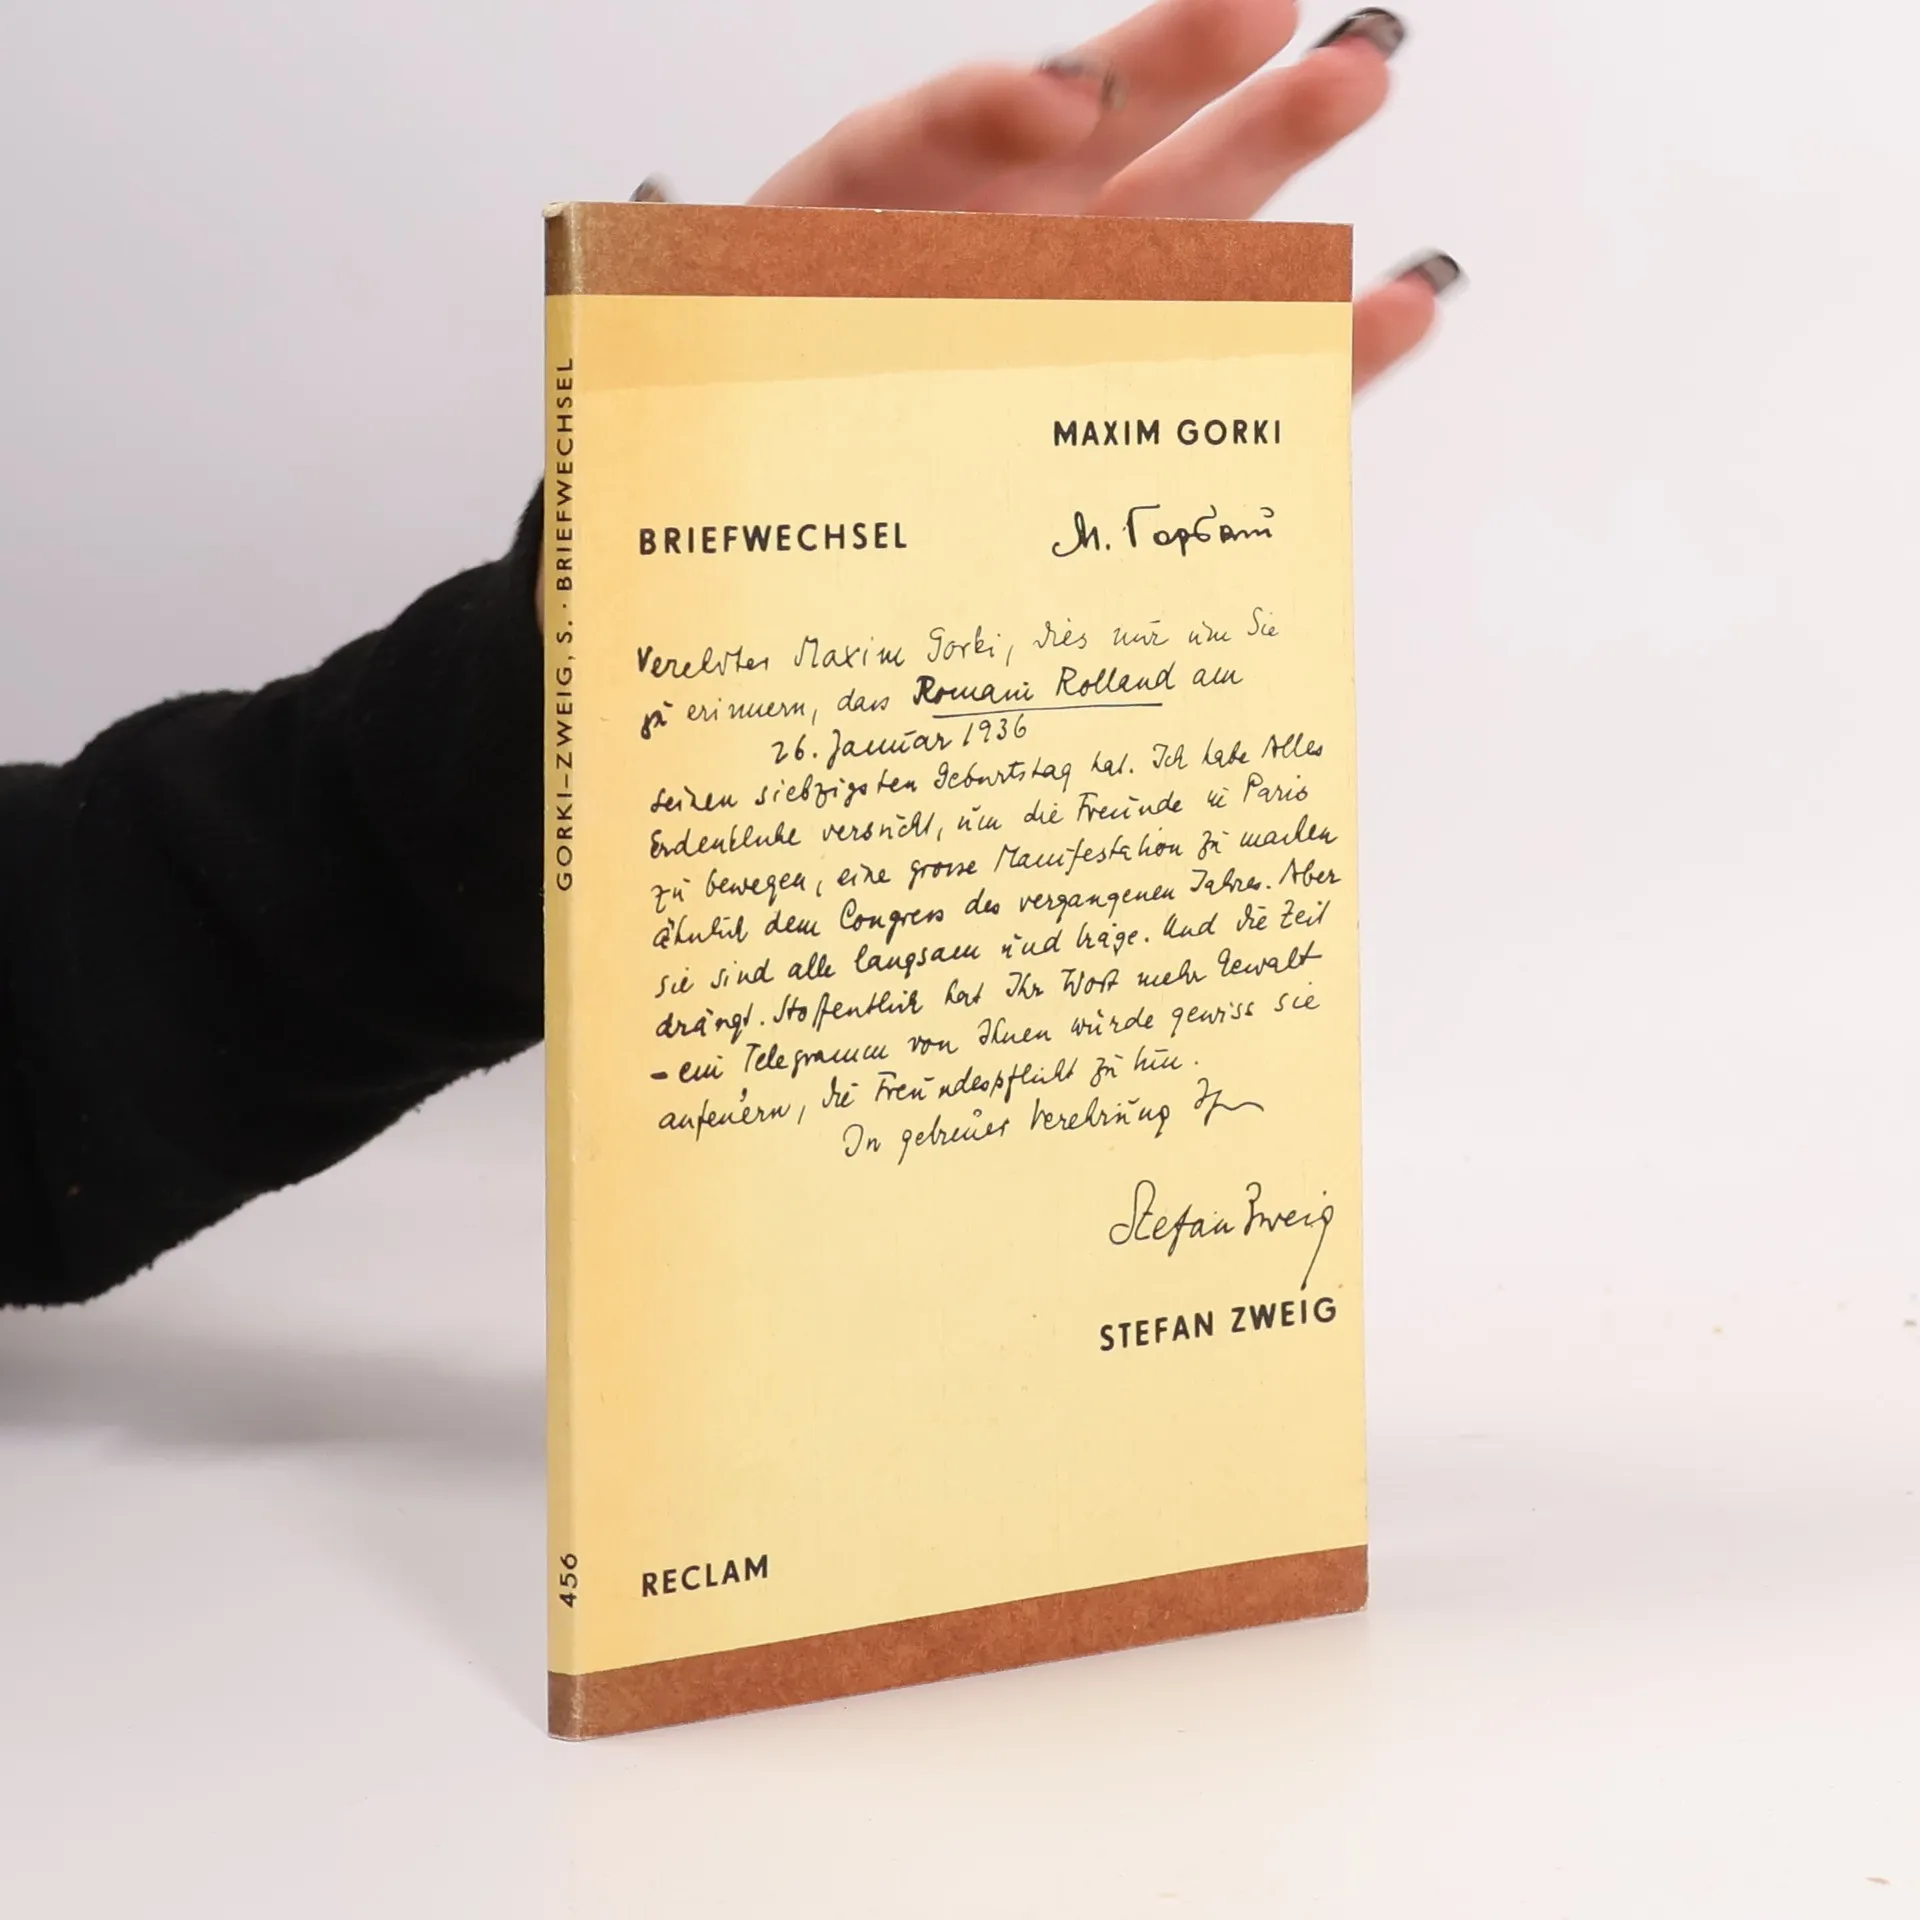 GORKI–ZWEIG, S. · BRIEFWECHSEL
456
MAXIM GORKI
BRIEFWECHSEL
М. Горькій
Verehrter Maxim Gorki, dies nur um Sie
zu erinnern, dass Romain Rolland am
26. Januar 1936
seinen siebzigsten Geburtstag hat. Ich habe Alles
Erdenkliche versucht, um die Freunde in Paris
zu bewegen, eine grosse Manifestation zu machen
ähnlich dem Congress des vergangenen Jahres. Aber
sie sind alle langsam und träge. Und die Zeit
drängt. Hoffentlich hat Ihr Wort mehr Gewalt
– ein Telegramm von Ihnen würde gewiss sie
anfeuern, die Freundespflicht zu tun.
In getreuer Verehrung Ihr
Stefan Zweig
STEFAN ZWEIG
RECLAM